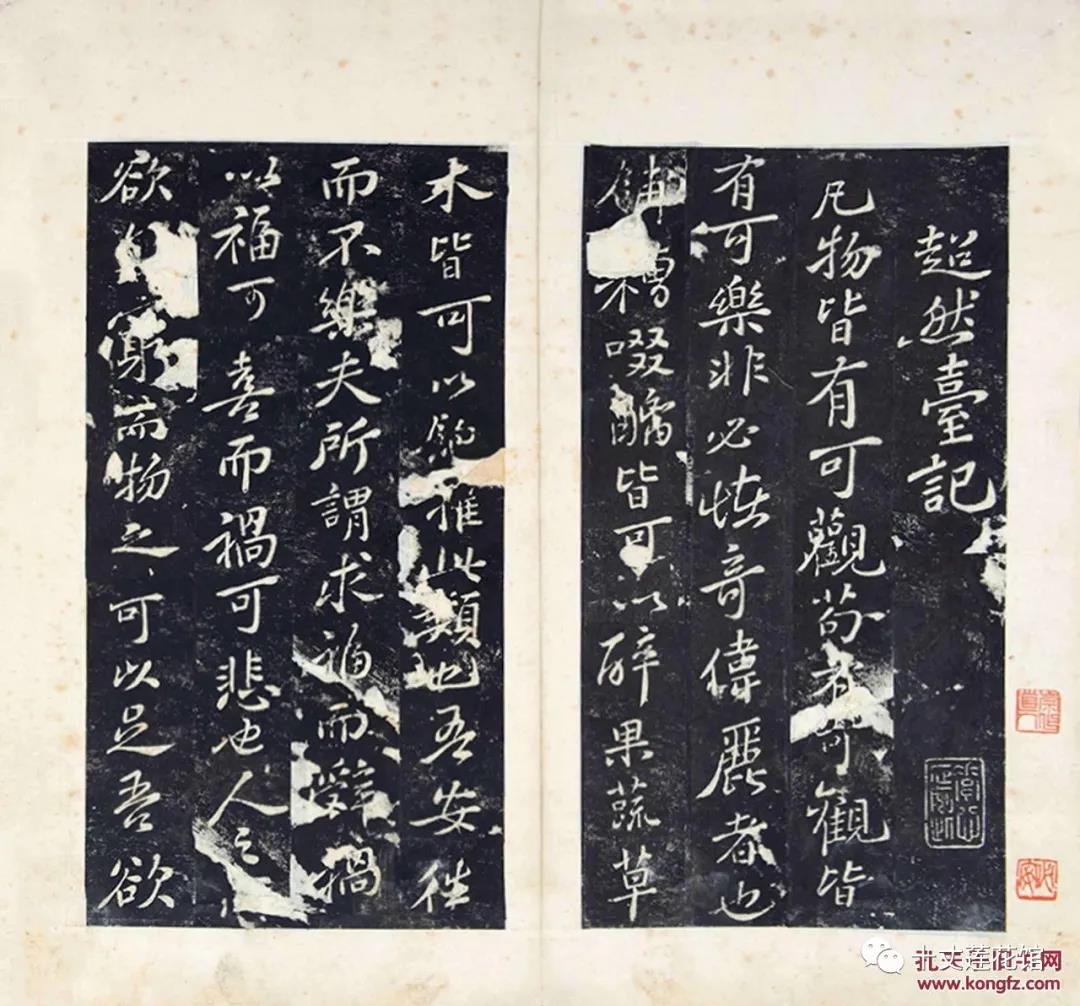 超然臺記
凡物皆有可觀苟有可觀皆
有可樂非必恠奇偉麗者也
餔糟啜醨皆可以醉果蔬草
木皆可以飽推此類也吾安往
而不樂夫所謂求福而辭禍
以福可喜而禍可悲也人之
欲窮而物之可以足吾欲
十丈莲花馆
孔夫子旧书网
www.kongfz.com